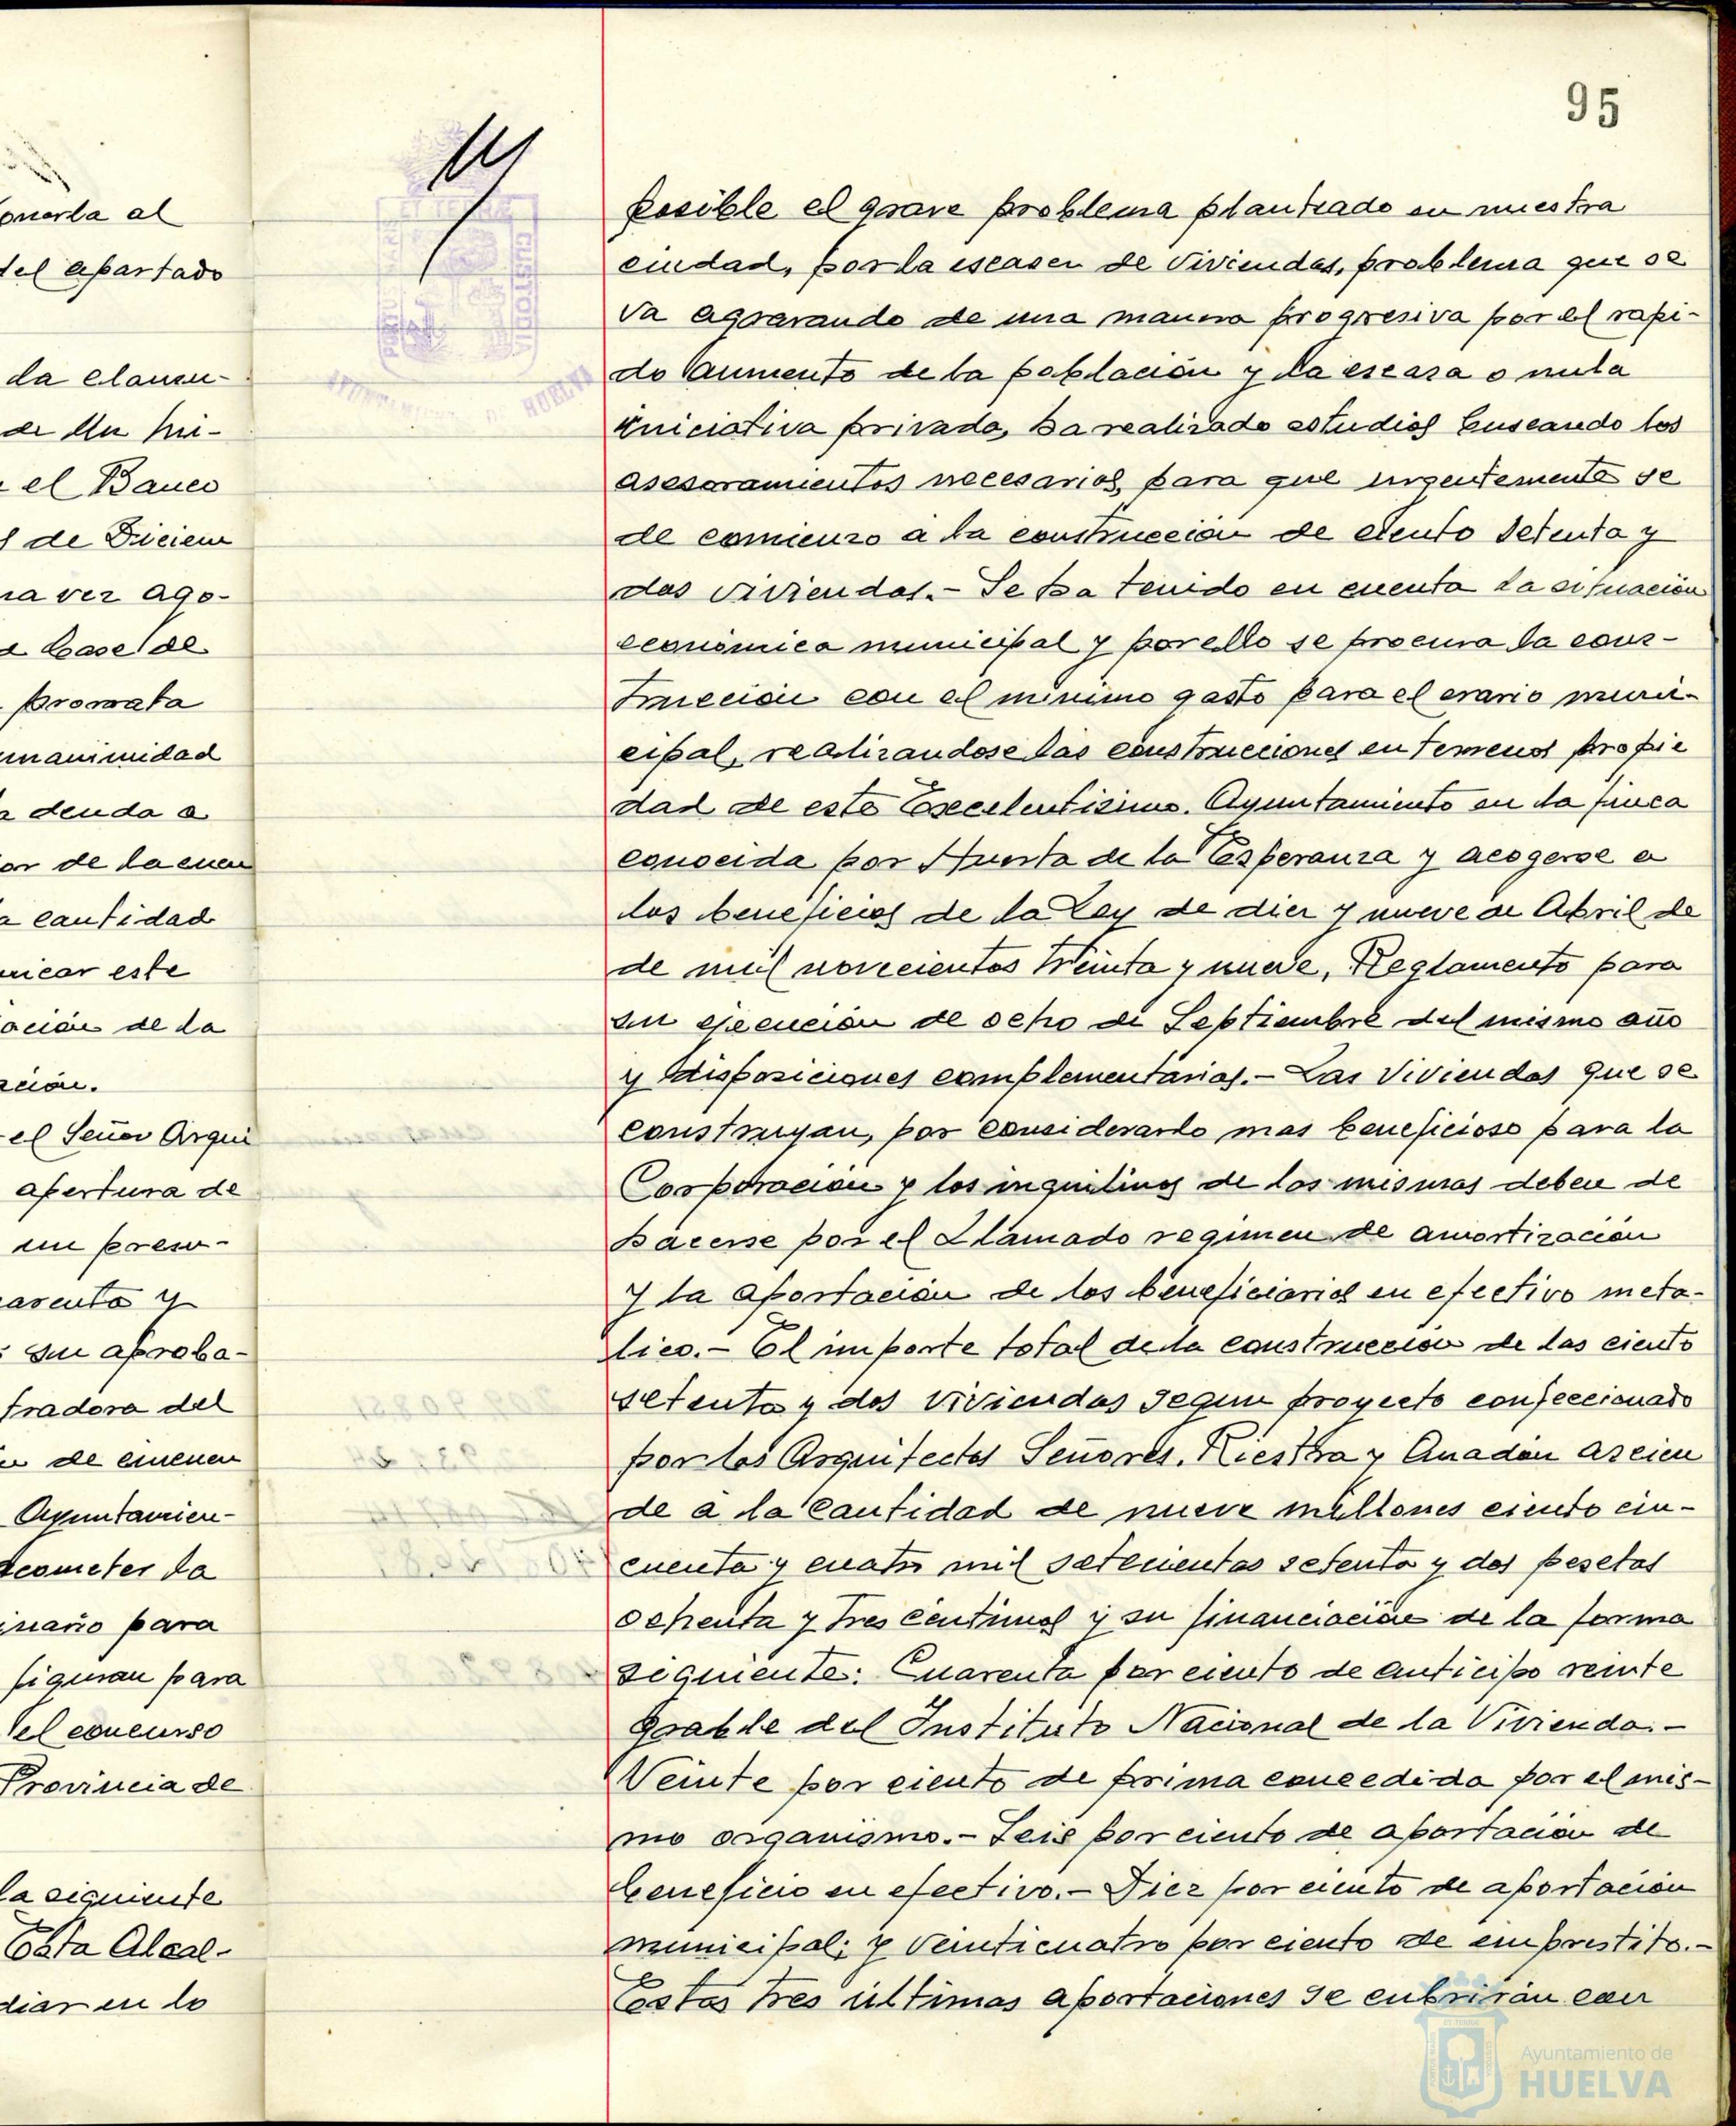 onerla al
del apartado
da clausu-
de un mi-
el Banco
s de Diciem
na vez ago-
a base de
prorrata
unanimidad
a deuda a
or de la cuen
a cantidad
nicar este
ación de la
ación.
el Señor Arqui
apertura de
un presu-
su aproba-
tradora del
de enmen
Ayuntamien-
acometer la
inario para
figuran para
el concurso
Provincia de
la siguiente
Esta Alcal-
diar en lo
95
posible el grave problema planteado en nuestra
ciudad, por la escasez de viviendas, problema que se
va agravando de una manera progresiva por el rapi-
do aumento de la población y la escasa o nula
iniciativa privada, ha realizado estudios buscando los
asesoramientos necesarios, para que urgentemente se
de comienzo a la construcción de ciento setenta y
dos viviendas.- Se ha tenido en cuenta la situación
económica municipal y por ello se procura la cons-
trucción con el minimo gasto para el erario muni-
cipal, realizandose las construcciones en terrenos propie
dad de este Excelentisimo. Ayuntamiento en la finca
conocida por Huerta de la Esperanza y acogerse a
los beneficios de la Ley de diez y nueve de Abril de
de mil novecientos treinta y nueve, Reglamento para
su ejecución de ocho de Septiembre del mismo año
y disposiciones complementarias.- Las Viviendas que se
construyan, por considerarlo mas beneficioso para la
Corporación y los inquilinos de las mismas deben de
hacerse por el Llamado regimen de amortización
y la aportación de los beneficiarios en efectivo meta-
lico.- El importe total de la construcción de las ciento
setenta y dos viviendas segun proyecto confeccionado
por los Arquitectos Señores. Riestra y Anadón ascien
de a la cantidad de nueve millones ciento cin-
cuenta y cuatro mil setecientas setenta y dos pesetas
ochenta y tres centimos y su financiación de la forma
siguiente: Cuarenta por ciento de anticipo reinte
grable del Instituto Nacional de la Vivienda.-
Veinte por ciento de prima concedida por el mis-
mo organismo.- Seis por ciento de aportación de
beneficio en efectivo.- Diez por ciento de aportación
municipal; y Veinticuatro por ciento de emprestito.-
Estas tres últimas aportaciones se cubrirán con
Ayuntamiento de
HUELVA